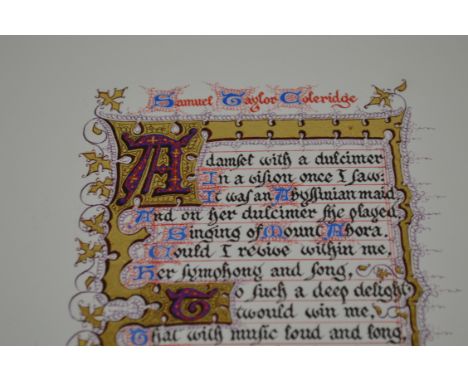 Samuel Taylor Coleridge
A damsel with a dulcimer
In a vision once I saw:
It was an Abyssinian maid
And on her dulcimer she played,
Singing of Mount Abora.
Could I revive within me,
Her symphony and song,
To such a deep delight
'twould win me,
That with music loud and long,